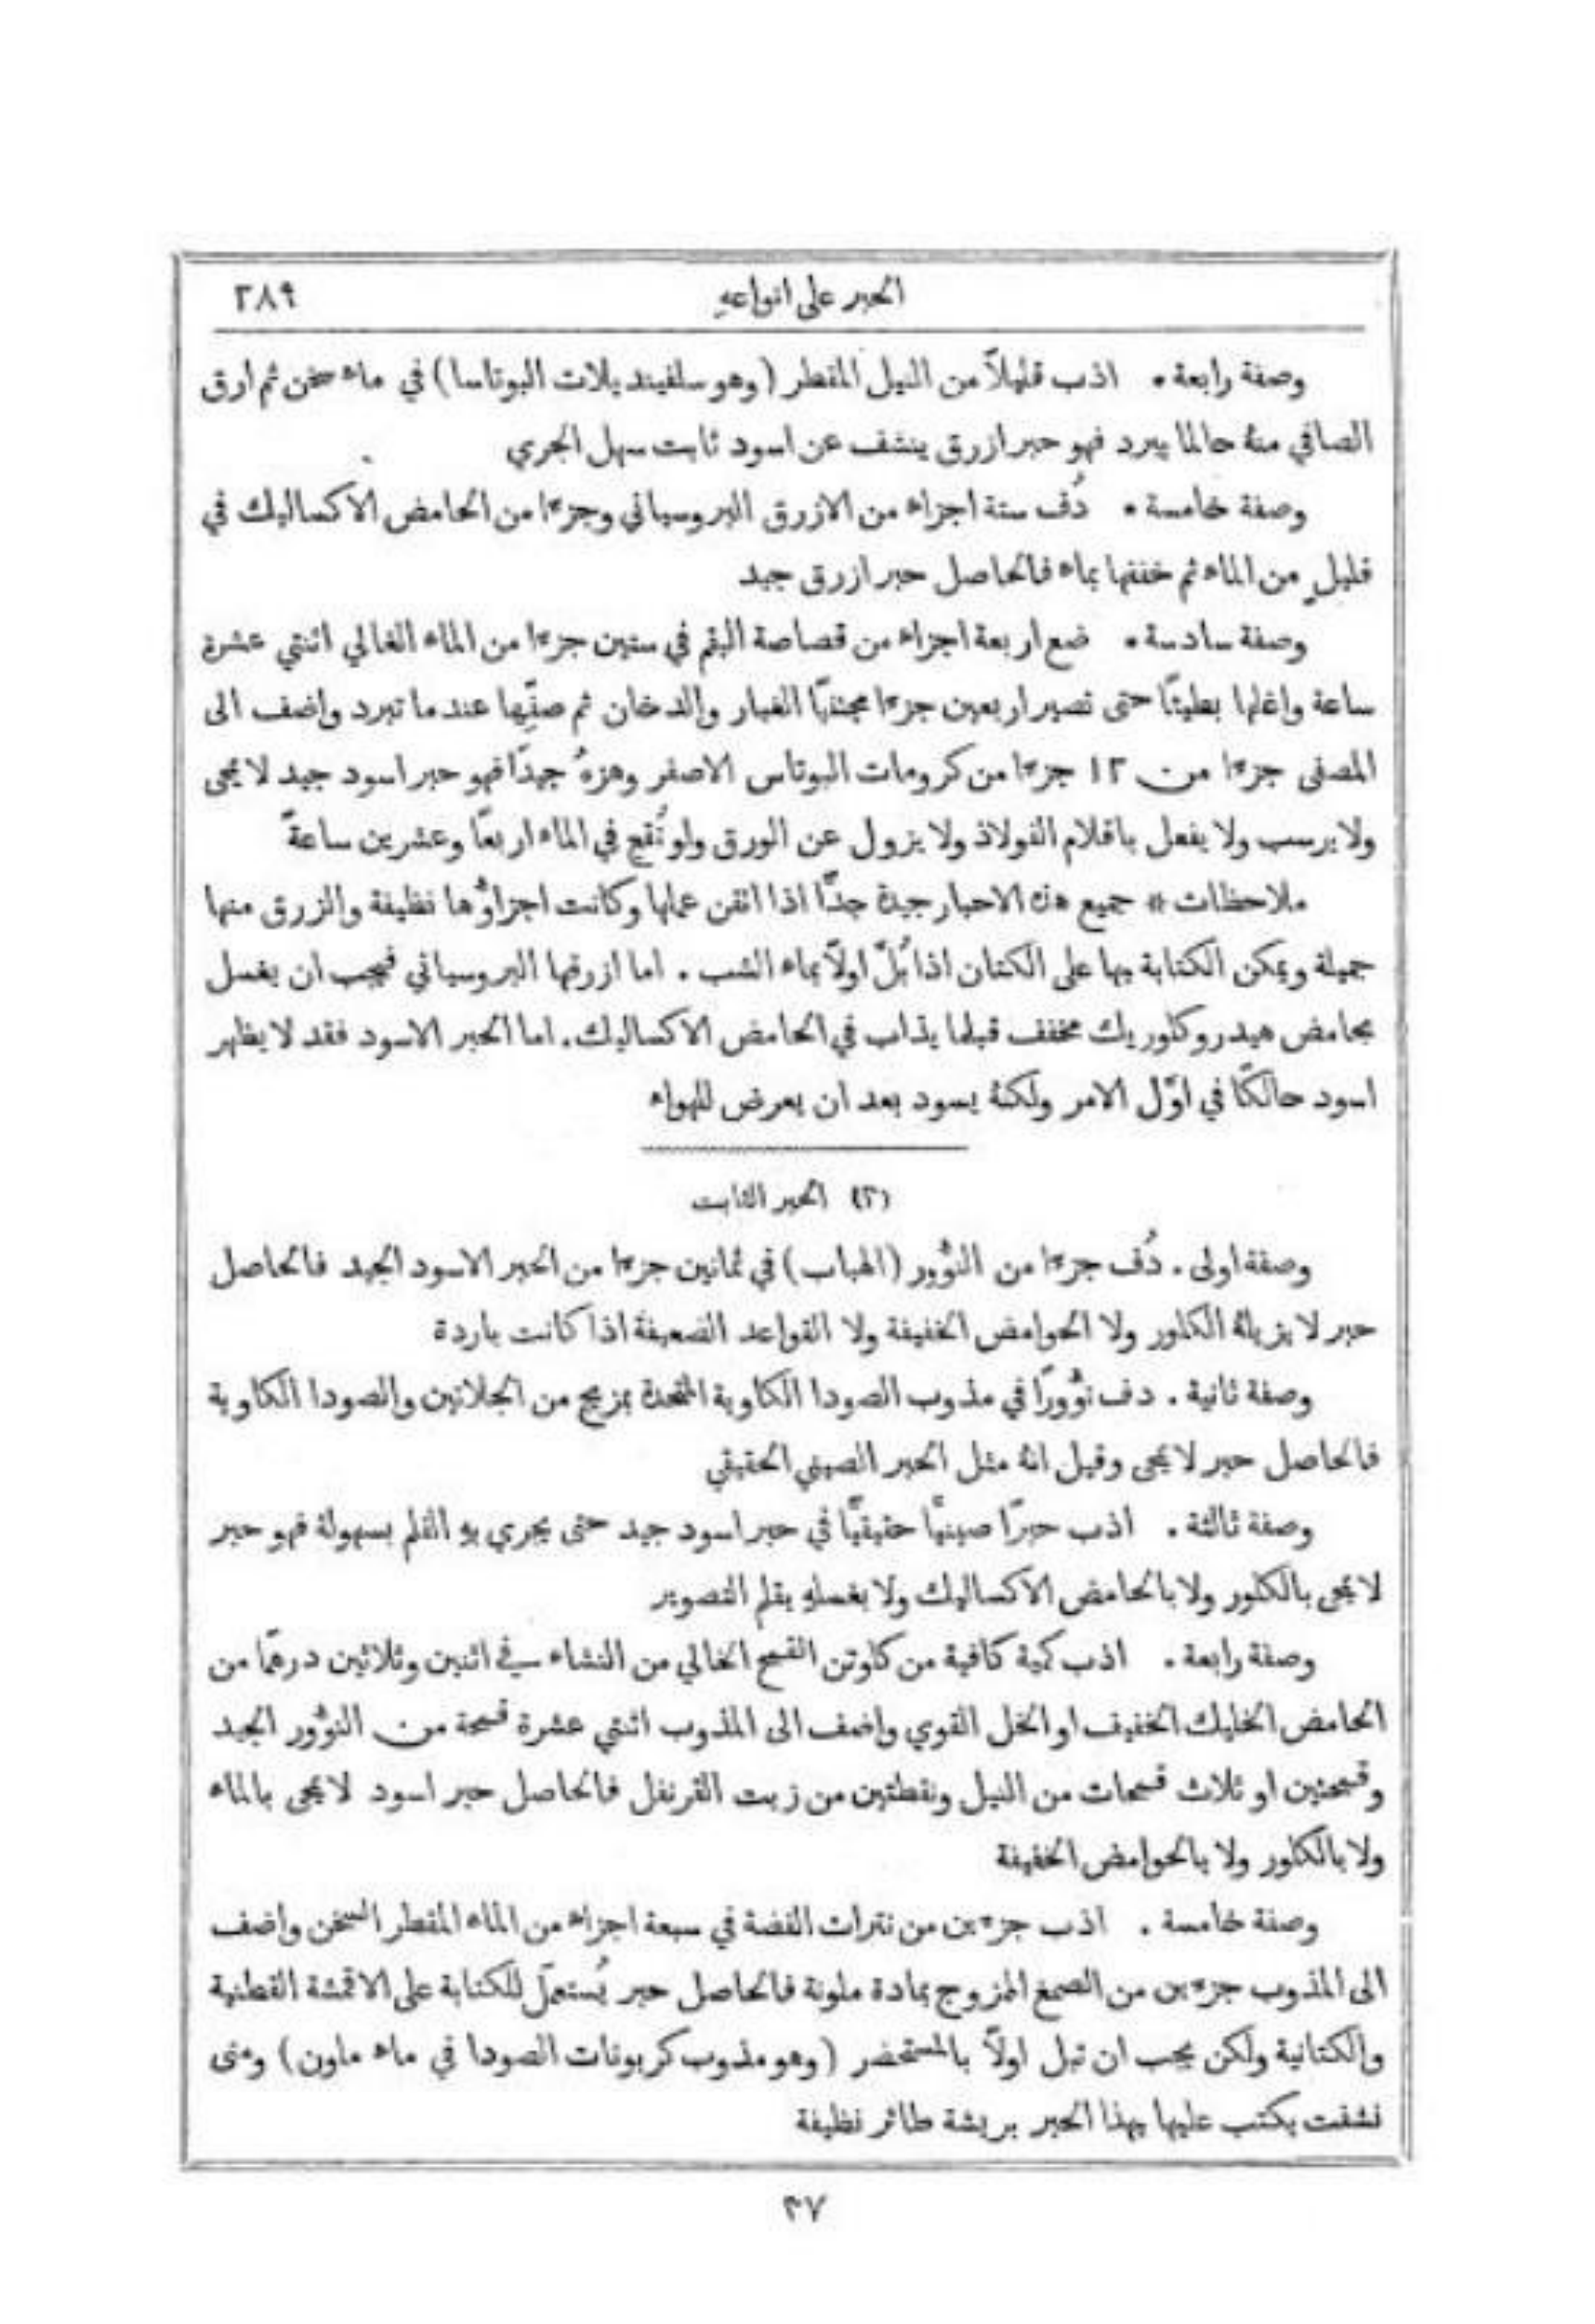 الحبر على انواعهِ
٢٨٩
وصفة رابعة • اذب قليلاً من النيل المقطر (وهو سلفينديلات البوتاسا) في ماء سخن ثم ارق
الصافي منهُ حالما يبرد فهو حبر ازرق ينشف عن اسود ثابت سهل الجري
وصفة خامسة • دُف ستة اجزاء من الازرق البروسياني وجزءًا من الحامض الاكساليك في
قليلٍ من الماء ثم خففها بماء فالحاصل حبر ازرق جيد
وصفة سادسة • ضع اربعة اجزاء من قصاصة البقم في ستين جزءًا من الماء الغالي اثنتي عشرة
ساعة واغلها بطيئًا حتى تصير اربعين جزءًا مجتنبًا الغبار والدخان ثم صفّيها عند ما تبرد واضف الى
المصفى جزءًا من ١٢ جزءًا من كرومات البوتاس الاصفر وهزهُ جيدًا فهو حبر اسود جيد لا يمحى
ولا يرسب ولا يفعل باقلام الفولاذ ولا يزول عن الورق ولو نُقع في الماء اربعًا وعشرين ساعةً
ملاحظات * جميع هذه الاحبار جيدة جدًّا اذا اتقن عملها وكانت اجزاؤُها نظيفة والزرق منها
جميلة ويمكن الكتابة بها على الكتان اذا بُلّ اولاً بماء الشب . اما ازرقها البروسياني فيجب ان يغسل
بحامض هيدروكلوريك مخفف قبلما يذاب في الحامض الاكساليك. اما الحبر الاسود فقد لا يظهر
اسود حالكًا في اوَّل الامر ولكنهُ يسود بعد ان يعرض للهواء
(٢) الحبر الثابت
وصفة اولى . دُف جزءًا من النؤُور (الهباب) في ثمانين جزءًا من الحبر الاسود الجيد فالحاصل
حبر لا يزيلهُ الكلور ولا الحوامض الخفيفة ولا القواعد الضعيفة اذا كانت باردة
وصفة ثانية . دف نؤُورًا في مذوب الصودا الكاوية المتحدة بمزيج من الجلاتين والصودا الكاوية
فالحاصل حبر لا يمحى وقيل انهُ مثل الحبر الصيني الحقيقي
وصفة ثالثة . اذب حبرًا صينيًا حقيقيًّا في حبر اسود جيد حتى يجري بهِ القلم بسهولة فهو حبر
لا يمحى بالكلور ولا بالحامض الاكساليك ولا بغسلهِ بقلم التصوير
وصفة رابعة . اذب كمية كافية من كلوتن القمح الخالي من النشاء في اثنين وثلاثين درهمًا من
الحامض الخليك الخفيف او الخل القوي واضف الى المذوب اثنتي عشرة قمحة من النؤُور الجيد
وقمحتين او ثلاث قمحات من النيل ونقطتين من زيت القرنفل فالحاصل حبر اسود لا يمحى بالماء
ولا بالكلور ولا بالحوامض الخفيفة
وصفة خامسة . اذب جزءين من نترات الفضة في سبعة اجزاء من الماء المقطر السخن واضف
الى المذوب جزءين من الصمغ الممزوج بمادة ملونة فالحاصل حبر يُستعمَل للكتابة على الاقمشة القطنية
والكتانية ولكن يجب ان تبل اولاً بالمستحضر (وهو مذوب كربونات الصودا في ماء ملون) ومتى
نشفت يكتب عليها بهذا الحبر بريشة طائر نظيفة
٣٧